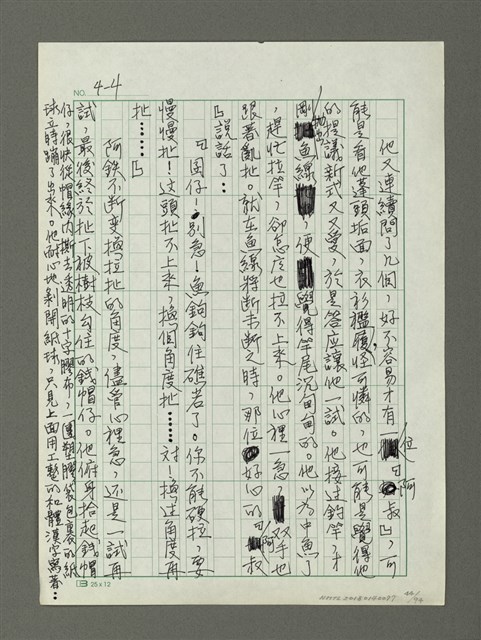 NO. 4-4
他又連續問了几個，好不容易才有位「阿叔」，可
能是看他蓬頭垢面，衣衫襤褸，怪可憐的，也可能是覺得他
的提議新式又又愛，於是答应讓他一試。他接过釣竿，才
剛拋出魚線，便覺得竿尾沉甸甸的。他以為中魚了
，趕忙拉竿，卻怎麼也拉不上來。他心裡一急，双手也
跟著亂扯。就在魚線將断未断之時，那位好心的「阿叔
」說話了：
「囡仔！別急！魚鉤鉤住礁岩了。你不能硬拉，要
慢慢扯！这頭扯不上來，換個角度扯……对！換这角度再
扯……」
阿鉄不断变換拉扯的角度，儘管心裡急，还是一試再
試，最後終於扯下被樹枝勾住的銭帽仔。他俯身拾起銭帽
仔，很快從帽緣內撕去透明的十字膠布，一團塑膠袋包裹的紙
球立時蹦了出來。他耐心地剝開紙球，只見上面用工整的和體漢字寫著：
25x12